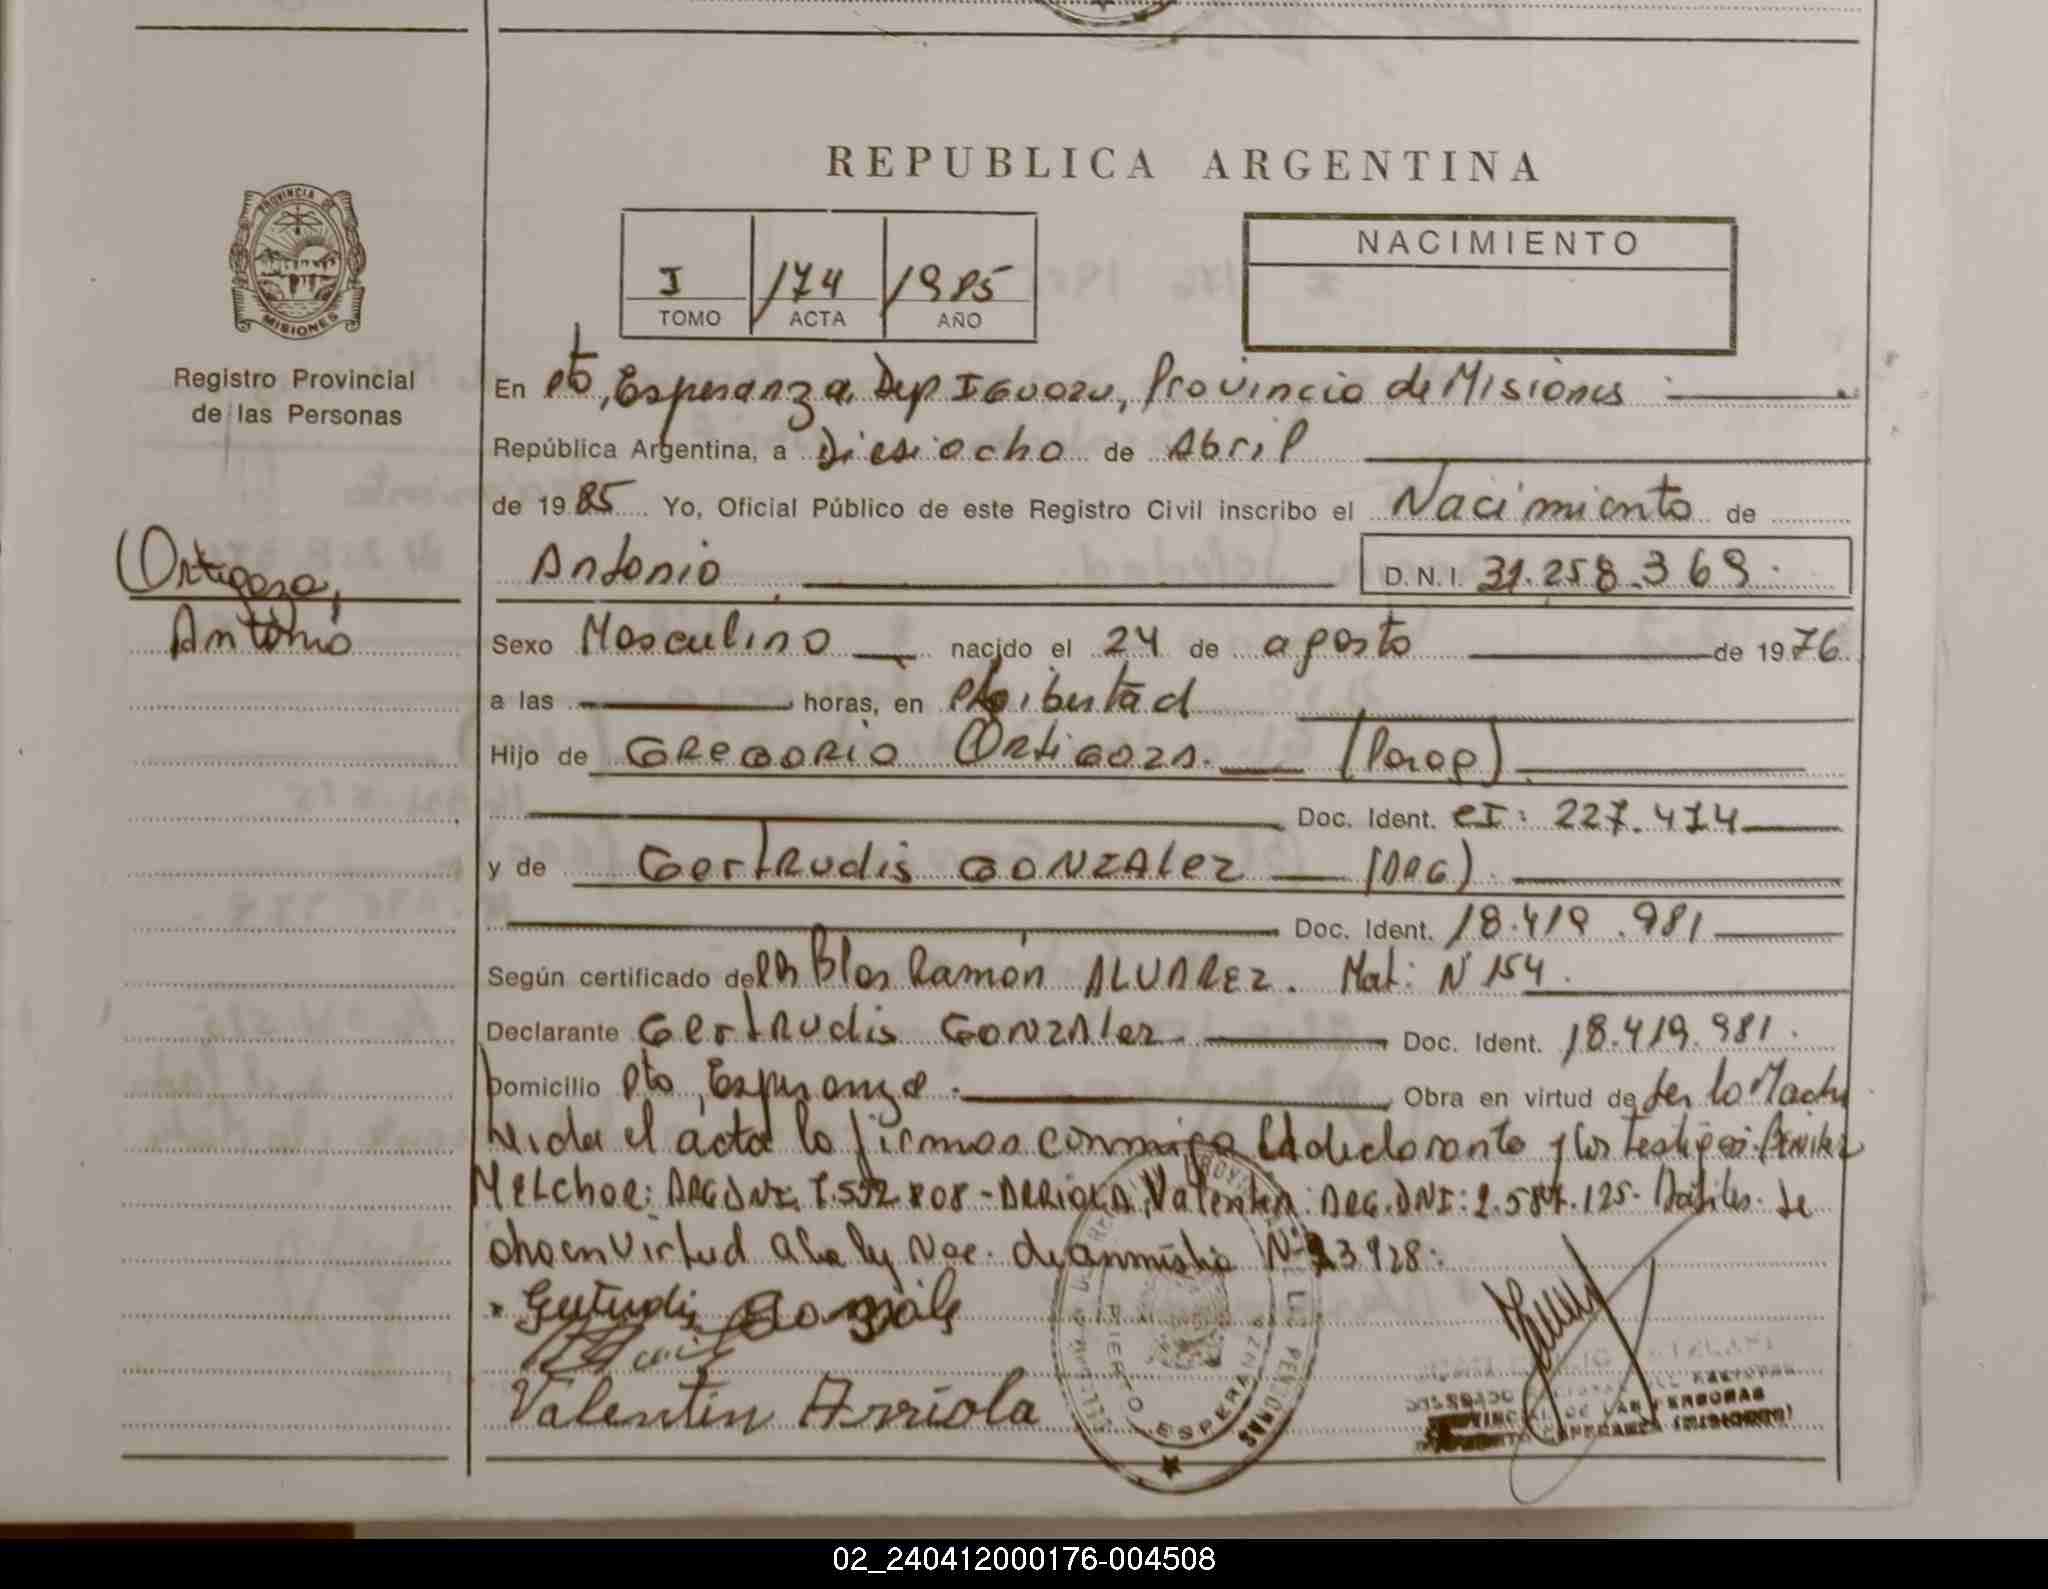 REPUBLICA ARGENTINA
PROVINCIA DE
MISIONES
Registro Provincial
de las Personas
I /174 /1985
TOMO ACTA AÑO
NACIMIENTO
En Pto, Esperanza, Dep Iguazu, Provincia de Misiones
República Argentina, a Diesiocho de Abril
de 1985 Yo, Oficial Público de este Registro Civil inscribo el Nacimiento de
Ortigoza,
Antonio
Antonio D.N.I. 31.258.369.
Sexo Masculino nacido el 24 de agosto de 1976
a las horas, en Pto Libertad
Hijo de GREGORIO Ortigoza. (Parag)
Doc. Ident. CI: 227.474
y de Gertrudis GONZALEZ (ARG)
Doc. Ident. 18.419.981
Según certificado de Blas Ramón ALVAREZ. Mat: N° 154.
Declarante Gertrudis GONZALEZ Doc. Ident. 18.419.981.
Domicilio Pto, Esperanza. Obra en virtud de ser la Madre
Leida el acta la firman conmigo la declarante y los testigos: Benitez
Melchor: ARG DNI: 7.592.808 - ARRIOLA, Valentin: ARG. DNI: 2.587.125. Hábiles. Se
en virtud a la ley Nac. de amnistia N° 23928:
Gertrudis Gonzáles
Valentin Arriola
PUERTO ESPERANZA
DE LAS PERSONAS
DE LAS PERSONAS
ESPERANZA (MISIONES)
02_240412000176-004508